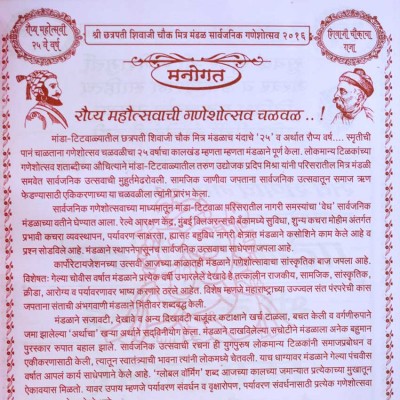 रौप्य महोत्सवी
२५ वे वर्ष
श्री छत्रपती शिवाजी चौक मित्र मंडळ सार्वजनिक गणेशोत्सव २०१६
शिवाजी चौकाचा
राजा
मनोगत
रौप्य महौत्सवाची गणेशोत्सव चळवळ . . !
मांडा-टिटवाळ्यातील छत्रपती शिवाजी चौक मित्र मंडळाच यंदाचे '२५' व अर्थात रौप्य वर्ष.... स्मृतीची
पानं चाळताना गणेशोत्सव चळवळीचा २५ वर्षाचा कालखंड म्हणता म्हणता मंडळाने पूर्ण केला. लोकमान्य टिळकांच्या
गणेशोत्सव शताब्दीच्या औचित्याने मांडा-टिटवाळ्यातील तरुण उद्योजक प्रदिप मिश्रा यांनी परिसरातील मित्र मंडळी
समवेत सार्वजनिक उत्सवाची मुहुर्तमेढरोवली. सामजिक जाणीवा जपताना सार्वजनिक उत्सवातून समाज ऋण
फेडण्यासाठी एकिकरणाच्या या चळवळीला त्यांनी प्रारंभ केला.
सार्वजनिक गणेशोत्सवाच्या माध्यमातून मांडा-टिटवाळा परिसरातील नागरी समस्यांचा 'वेध' सार्वजनिक
मंडळाच्या वतीने घेण्यात आला. रेल्वे आरक्षण केंद्र, मुंबई
बँकामध्ये सुविधा, शुन्य कचरा मोहीम अंतर्गत
प्रभावी कचरा व्यवस्थापन, पर्यावरण-साक्षरता, ह्यासह बहुविध नागरी क्षेत्रात मंडळाने कसोशिने काम केले आहे व
प्रश्न सोडविले आहे. मंडळाने स्थापनेपासूनच सार्वजनिक उत्सवाचा साधेपणा जपला आहे.
कार्पोरेटायजेशनच्या उत्सवी आजच्या काळातही मंडळाने गणेशोत्सवाचा सांस्कृतिक बाज जपला आहे.
विशेषत: गेल्या चोवीस वर्षात मंडळाने प्रत्येक वर्षी उभारलेलें देखावे हे तत्कालीन राजकीय, सामाजिक, सांस्कृतिक,
क्रीडा, आरोग्य व पर्यावरणावर भाष्य करणारे ठरले आहेत. विशेष म्हणजे महाराष्ट्राच्या उज्ज्वल संत परंपरेची कास
जपताना संताची अभंगवाणी मंडळाने भिंतीवर शब्दबद्ध केली.
मंडळाने सजावटी, देखावे व अन्य दिखावटी बाजूंवर कटाक्षाने खर्च टाळला, बचत केली व वर्गणीरुपाने
जमा झालेल्या 'अर्थाचा' खऱ्या अर्थाने सद्विनीयोग केला. मंडळाने दाखविलेल्या सचोटीने मंडळाला अनेक बहुमान
पुरस्कार रुपात बहाल झाले. सार्वजनिक उत्सवाची रचना ही युगपुरुष लोकमान्य टिळकांनी समाजप्रबोधन व
एकीकरणासाठी केली, त्यातून स्वातंत्र्याची भावना त्यांनी लोकमध्ये चेतवली. याच धाग्यावर मंडळाने गेल्या पंचवीस
वर्षात आपलं कार्य साधेपणाने केले आहे. 'ग्लोबल वॉर्मिंग' शब्द आजच्या काळच्या जमान्यात प्रत्येकाच्या मुखातून
ऐकावयास मिळतो. यावर उपाय म्हणजे पर्यावरण संवर्धन व वृक्षारोपण, पर्यावरण संवर्धनासाठी प्रत्येक गणेशोत्सव